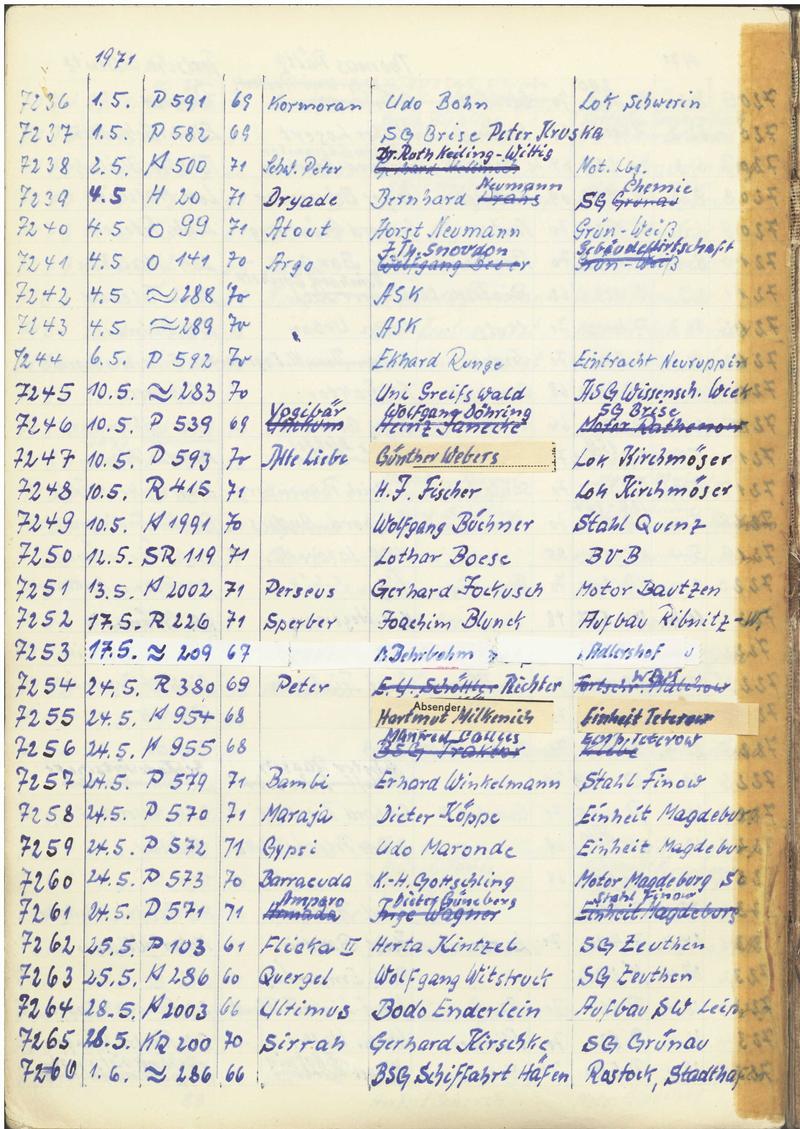 1971
7236 1.5. P 591 69 Kormoran Udo Bohn Lok Schwerin
7237 1.5. P 582 69 SG Brise Peter Kruska
Dr. Roth Keiling-Wittig
7238 2.5. K 500 71 Schw. Peter Mot. Lbg.
Neumann Chemie
7239 4.5 H 20 71 Dryade Bernhard SG Grünau
7240 4.5 O 99 71 Atout Horst Neumann Grün-Weiß
J. Th. Snowdon Gebäudewirtschaft
7241 4.5. O 141 70 Argo Grün-Weiß
7242 4.5. ≈ 288 70 ASK
7243 4.5. ≈ 289 70 ASK
7244 6.5. P 592 70 Ekhard Runge Eintracht Neuruppin
7245 10.5. ≈ 283 70 Uni Greifswald HSG Wissensch. Wiek
Yogibär Wolfgang Döhring SG Brise
7246 10.5. P 539 69 Heinz Janecke Motor Rathenow
7247 10.5. P 593 70 Alte Liebe Günther Webers Lok Kirchmöser
7248 10.5. R 415 71 H.J. Fischer Lok Kirchmöser
7249 10.5. K 1991 70 Wolfgang Büchner Stahl Quenz
7250 12.5. SR 119 71 Lothar Boese BVB
7251 13.5. K 2002 71 Perseus Gerhard Fockusch Motor Bautzen
7252 17.5. R 226 71 Sperber Joachim Blunck Aufbau Ribnitz-
7253 17.5. ≈ 209 67 Adlershof
7254 24.5. R 380 69 Peter Richter
Absender
7255 24.5. K 954 68 Hartmut Milkenich Einheit Teterow
Manfred Teterow
7256 24.5. K 955 68 BSG Traktor
7257 24.5. P 579 71 Bambi Erhard Winkelmann Stahl Finow
7258 24.5. P 570 71 Maraja Dieter Köppe Einheit Magdeburg
7259 24.5. P 572 71 Gypsi Udo Maronde Einheit Magdeburg
7260 24.5. P 573 70 Barracuda K.-H. Gottschling Motor Magdeburg
Amparo Dieter Günebers Stahl Finow
7261 24.5. P 571 71 Armada Inge Wagner Einheit Magdeburg
7262 25.5. P 103 61 Flicka II Herta Kintzel SG Zeuthen
7263 25.5. K 286 60 Quergel Wolfgang Witstruck SG Zeuthen
7264 28.5. K 2003 66 Ultimus Bodo Enderlein Aufbau SW Leipz
7265 28.5. KR 200 70 Sirrah Gerhard Kirschke SG Grünau
7260 1.6. ≈ 286 66 BSG Schiffahrt Häfen Rostock, Stadthafen